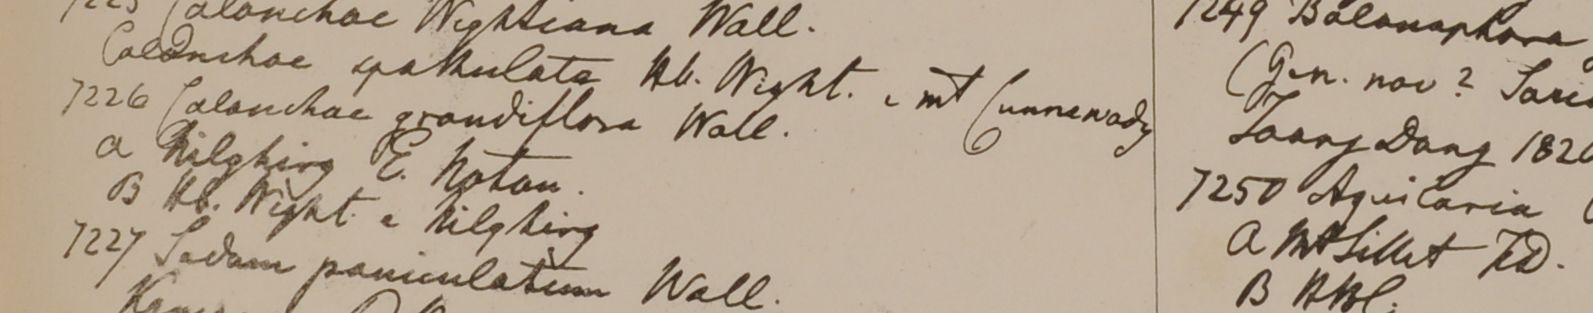 7225 Calanchae Wightiana Wall.
Calanchoe spathulata Hb. Wight. e mt Cunnawady
7226 Calanchae grandiflora Wall.
a Nilghiry E. Noton.
B Hb. Wight. e Nilghiry
7227 Sedum paniculatum Wall.
1249 Balanophora
(Gen. nov?
Taong Dong 182
7250 Aquilaria
a Mt Sillet FD.
B HBC.